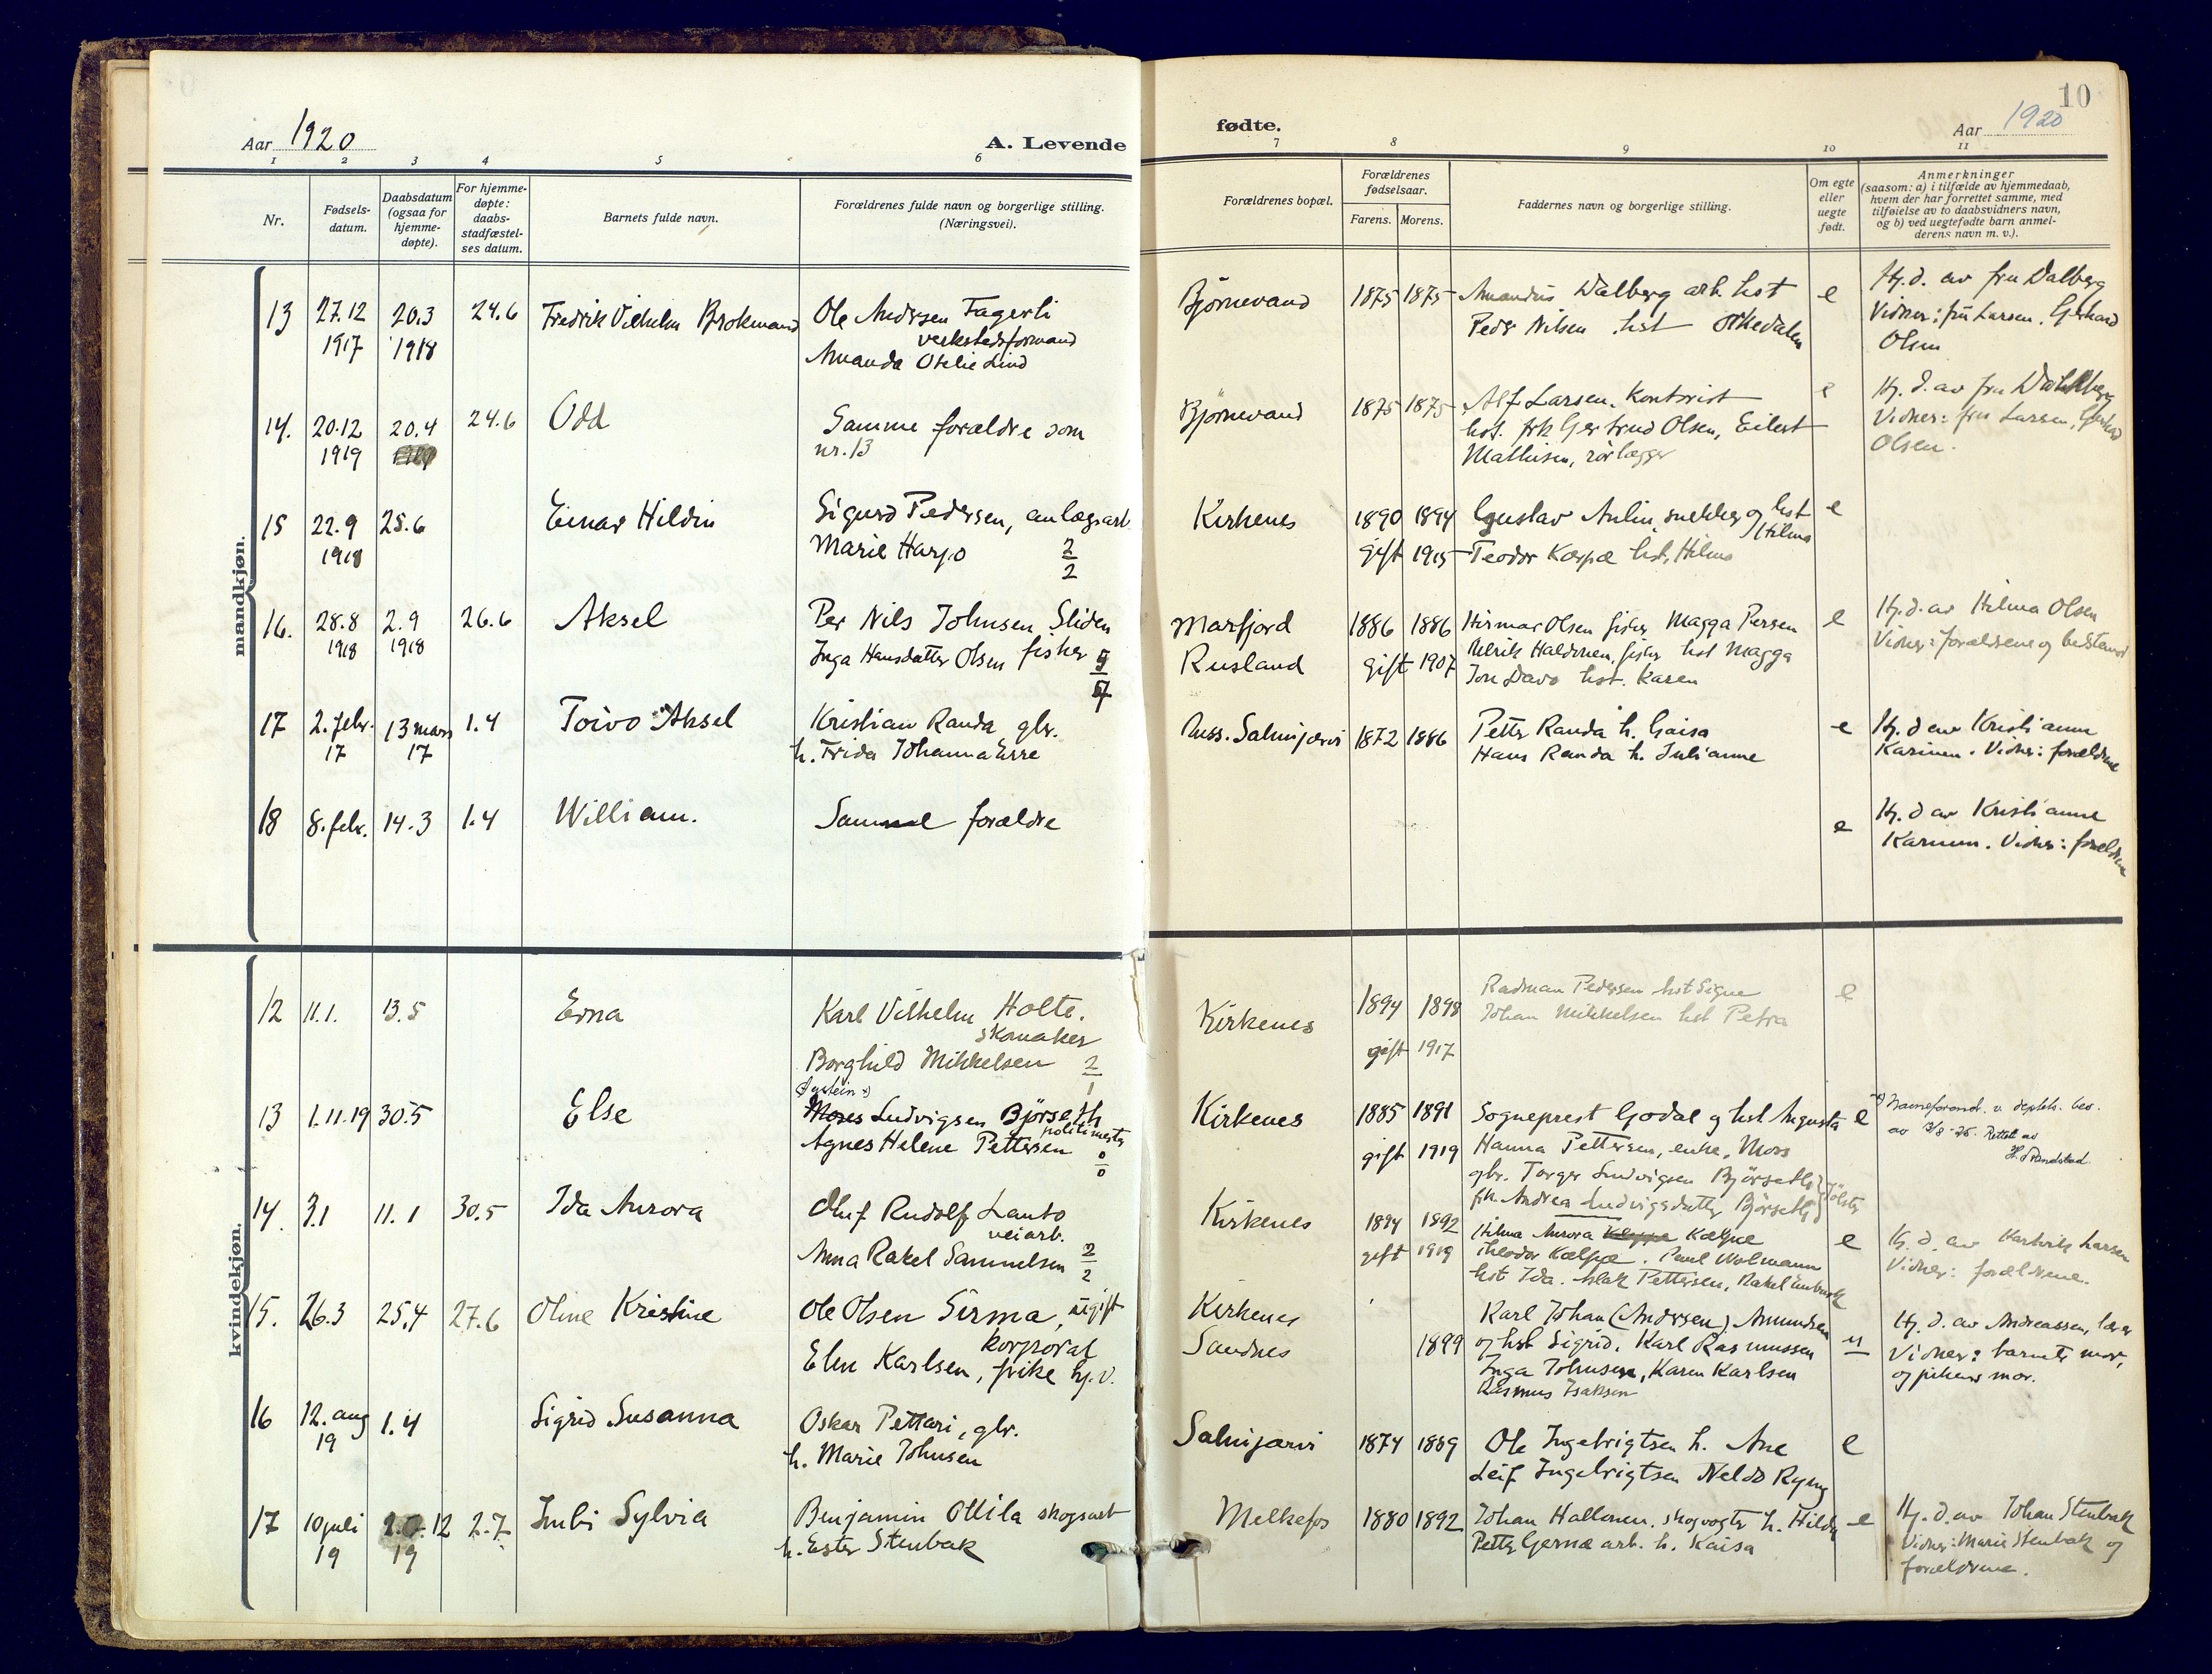 10
Aar 1920
A. Levende
fødte.
Aar 1920
1 2 3 4 5 6 7 8 9 10 11
Nr.
Fødsels-
datum.
Daabsdatum
(ogsaa for
hjemme-
døpte).
For hjemme-
døpte:
daabs-
stadfæstel-
ses datum.
Barnets fulde navn.
Forældrenes fulde navn og borgerlige stilling.
(Næringsvei).
Forældrenes bopæl.
Forældrenes
fødselsaar.
Farens. Morens.
Faddernes navn og borgerlige stilling.
Om egte
eller
uegte
født.
Anmerkninger
(saasom: a) i tilfælde av hjemmedaab,
hvem der har forrettet samme, med
tilføielse av to daabsvidners navn,
og b) ved uegtefødte barn anmel-
derens navn m. v.).
mandkjøn.
13
27.12
1917
20.3
1918
24.6
Fredrik Vilhelm Brokmand
Ole Andersen Fagerli
verkstedsformand
Amanda Otelie Lind
Bjørnevand
1875 1875
Amandus Dalberg arb. hst
Peder Nilsen hst Orkedalen
e
Hj. d. av fru Dalberg
Vidner: fru Larsen, Gerhard
Olsen
14.
20.12
1919
20.4
24.6
Odd
Samme forældre som
nr. 13
Bjørnevand
1875 1875
Alf Larsen, Kontorist
hst. frk Gertrud Olsen, Eilert
Mathisen, rørlægger
e
Hj. d. av fru Dahlberg
Vidner: fru Larsen, Gerhard
Olsen.
15
22.9
1918
25.6
Einar Hildin
Sigurd Pedersen, anlægsarb.
Marie Harjo
2
2
Kirkenes
1890 1894
gift 1915
Gustav Aulin, snekker og hst
Hilma
Teodor hst. Hilma
e
16.
28.8
1918
2.9
1918
26.6
Aksel
Per Nils Johnsen Sliden
fisker
Inga Hansdatter Olsen
Marfjord
Rusland
1886 1886
gift 1907
Hirmar Olsen fisker Magga Persen
Ulrik Haldonen, fisker hst Magga
Jon Davo hst. Karen
e
Hj. d. av Hilma Olsen
Vidner: forældrene og
17
2. febr.
17
13 mars
17
1.4
Toivo Aksel
Kristian Randa gbr.
h. Frida Johanna Erre
Russ. Salmijærvi
1872 1886
Petter Randa h. Gaisa
Hans Randa h. Julianne
e
Hj. d av Kristianne
Karinen. Vidner: forældrene
18
8. febr.
14.3
1.4
William.
Samme forældre
e
Hj. d av Kristianne
Karinen. Vidner: forældrene
kvindekjøn.
12
11.1.
13.5
Erna
Karl Vilhelm Holte.
skomaker
Borghild Mikkelsen
2
1
Kirkenes
1894 1898
gift 1917
Radman Pedersen hst Signe
Johan Mikkelsen hst Petra
e
13
1.11.19
30.5
Else
Øystein x)
Moses Ludvigsen Bjørseth
politimester
Agnes Helene Pettersen
0
0
Kirkenes
1885 1891
gift 1919
Sogneprest Godal og hst. Augusta
Hanna Pettersen, enke, Moss
gbr. Torger Ludvigsen Bjørseth
frk. Andrea Ludvigsdatter Bjørseth
Jølster
e
x) Navneforand. v. deptets. bev.
av 3/8-25. Rettet av
H. Strandstad.
14.
3.1
11.1
30.5
Ida Aurora
Oluf Rudolf Lanto
veiarb.
Anna Rakel Samuelsen
2
2
Kirkenes
1894 1892
gift 1919
Hilma Aurora Kælpæ
Theodor Kælpæ. Paul Wolmann
hst Ida. Islak Pettersen, Rakel
e
Hj. d. av Larsen
Vidner: forældrene.
15.
26.3
25.4
27.6
Oline Kristine
Ole Olsen Sirma, ugift
korporal
Elen Karlsen, pike hj. v.
Kirkenes
Sandnes
1899
Karl Johan (Andersen) Amundsen
og hst Sigrid. Karl Rasmussen
Inga Johnsen, Karen Karlsen
Rasmus Isaksen
u
Hj. d. av Andreassen, lærer
Vidner: barnets mor,
og pikens mor.
16
12. aug
19
1.4
Sigrid Susanna
Oskar Pettari, gbr.
h. Marie Johnsen
Salmijarvi
1874 1889
Ole Ingebrigtsen h. Ane
Leif Ingebrigtsen Neldo Ryeng
e
17
10 juli
19
12
19
2.7.
Imbi Sylvia
Benjamin Ottila skogsarb
h. Ester Stenbak
Melkefos
1880 1892
Johan Hallonen. skogvogter h. Hilda
Petter Gernæ arb. h. Kaisa
e
Hj. d. av Johan Stenbak
Vidner: Marie Stenbak og
forældrene.